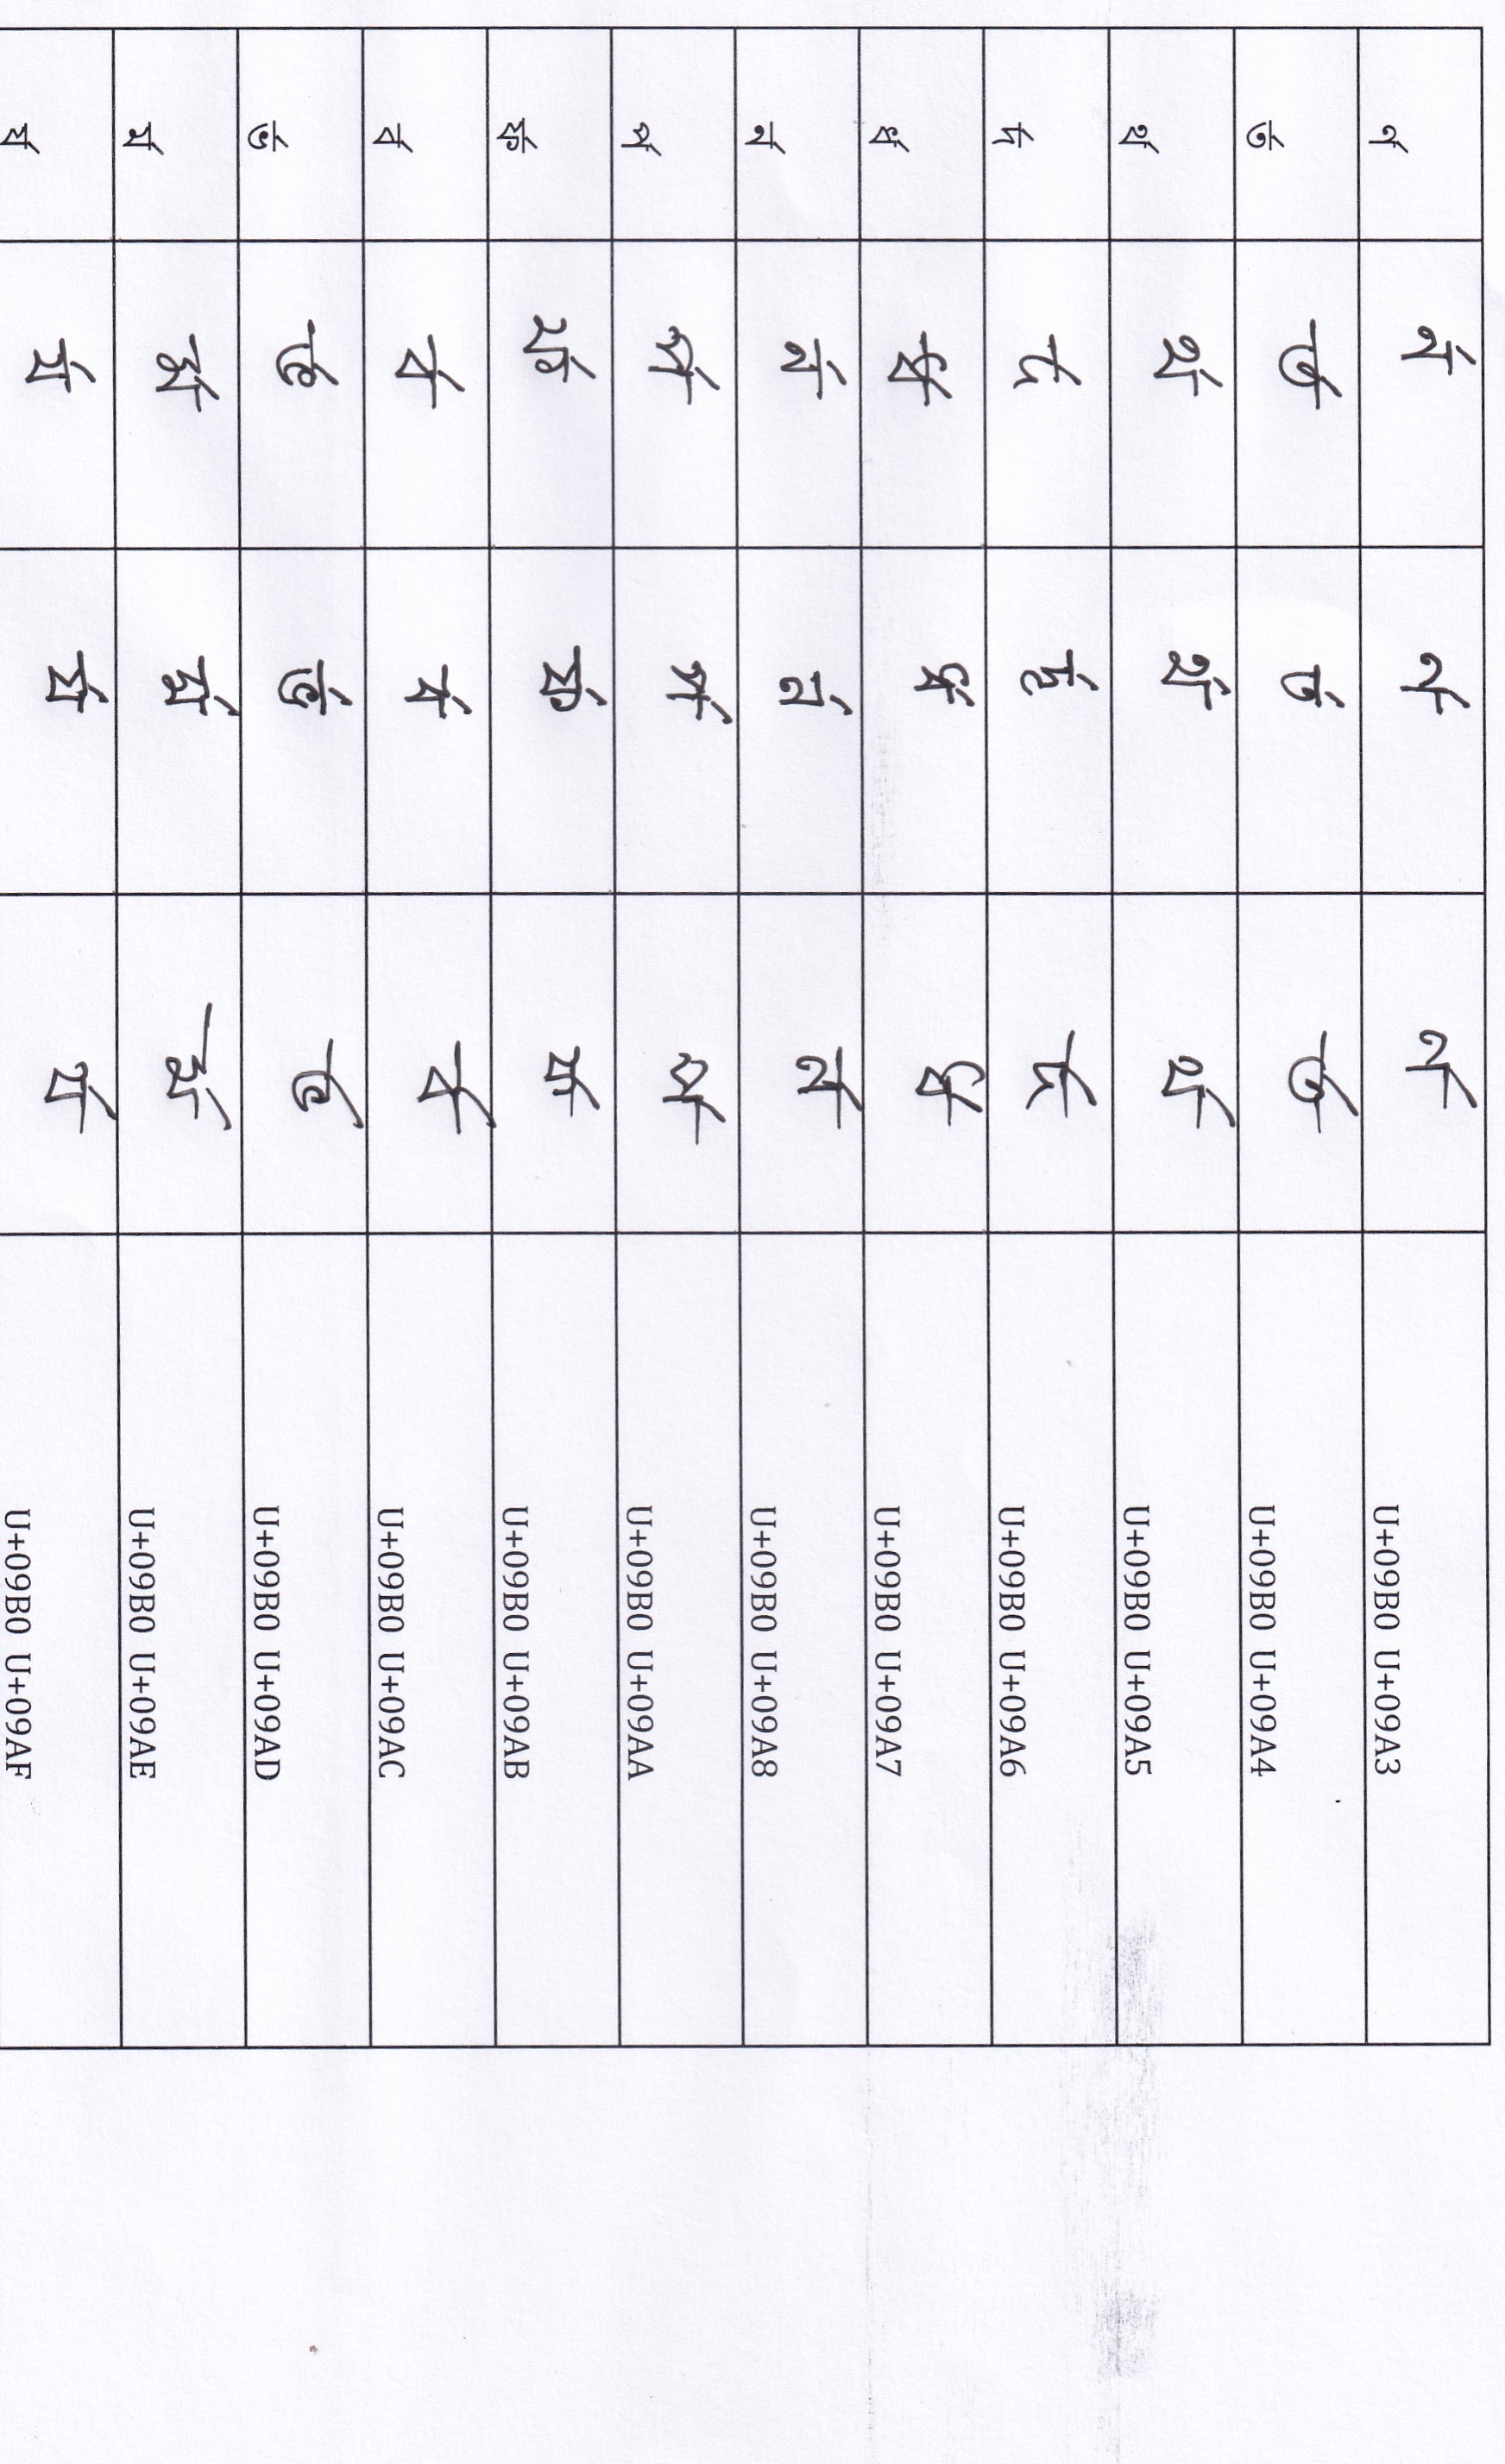 র্ণ র্ণ র্ণ র্ণ U+09B0 U+09A3
র্ত র্ত র্ত র্ত U+09B0 U+09A4
র্থ র্থ র্থ র্থ U+09B0 U+09A5
র্দ র্দ র্দ র্দ U+09B0 U+09A6
র্ধ র্ধ র্ধ র্ধ U+09B0 U+09A7
র্ন র্ন র্ন র্ন U+09B0 U+09A8
র্প র্প র্প র্প U+09B0 U+09AA
র্ফ র্ফ র্ফ র্ফ U+09B0 U+09AB
র্ব র্ব র্ব র্ব U+09B0 U+09AC
র্ভ র্ভ র্ভ র্ভ U+09B0 U+09AD
র্ম র্ম র্ম র্ম U+09B0 U+09AE
র্য র্য র্য র্য U+09B0 U+09AF